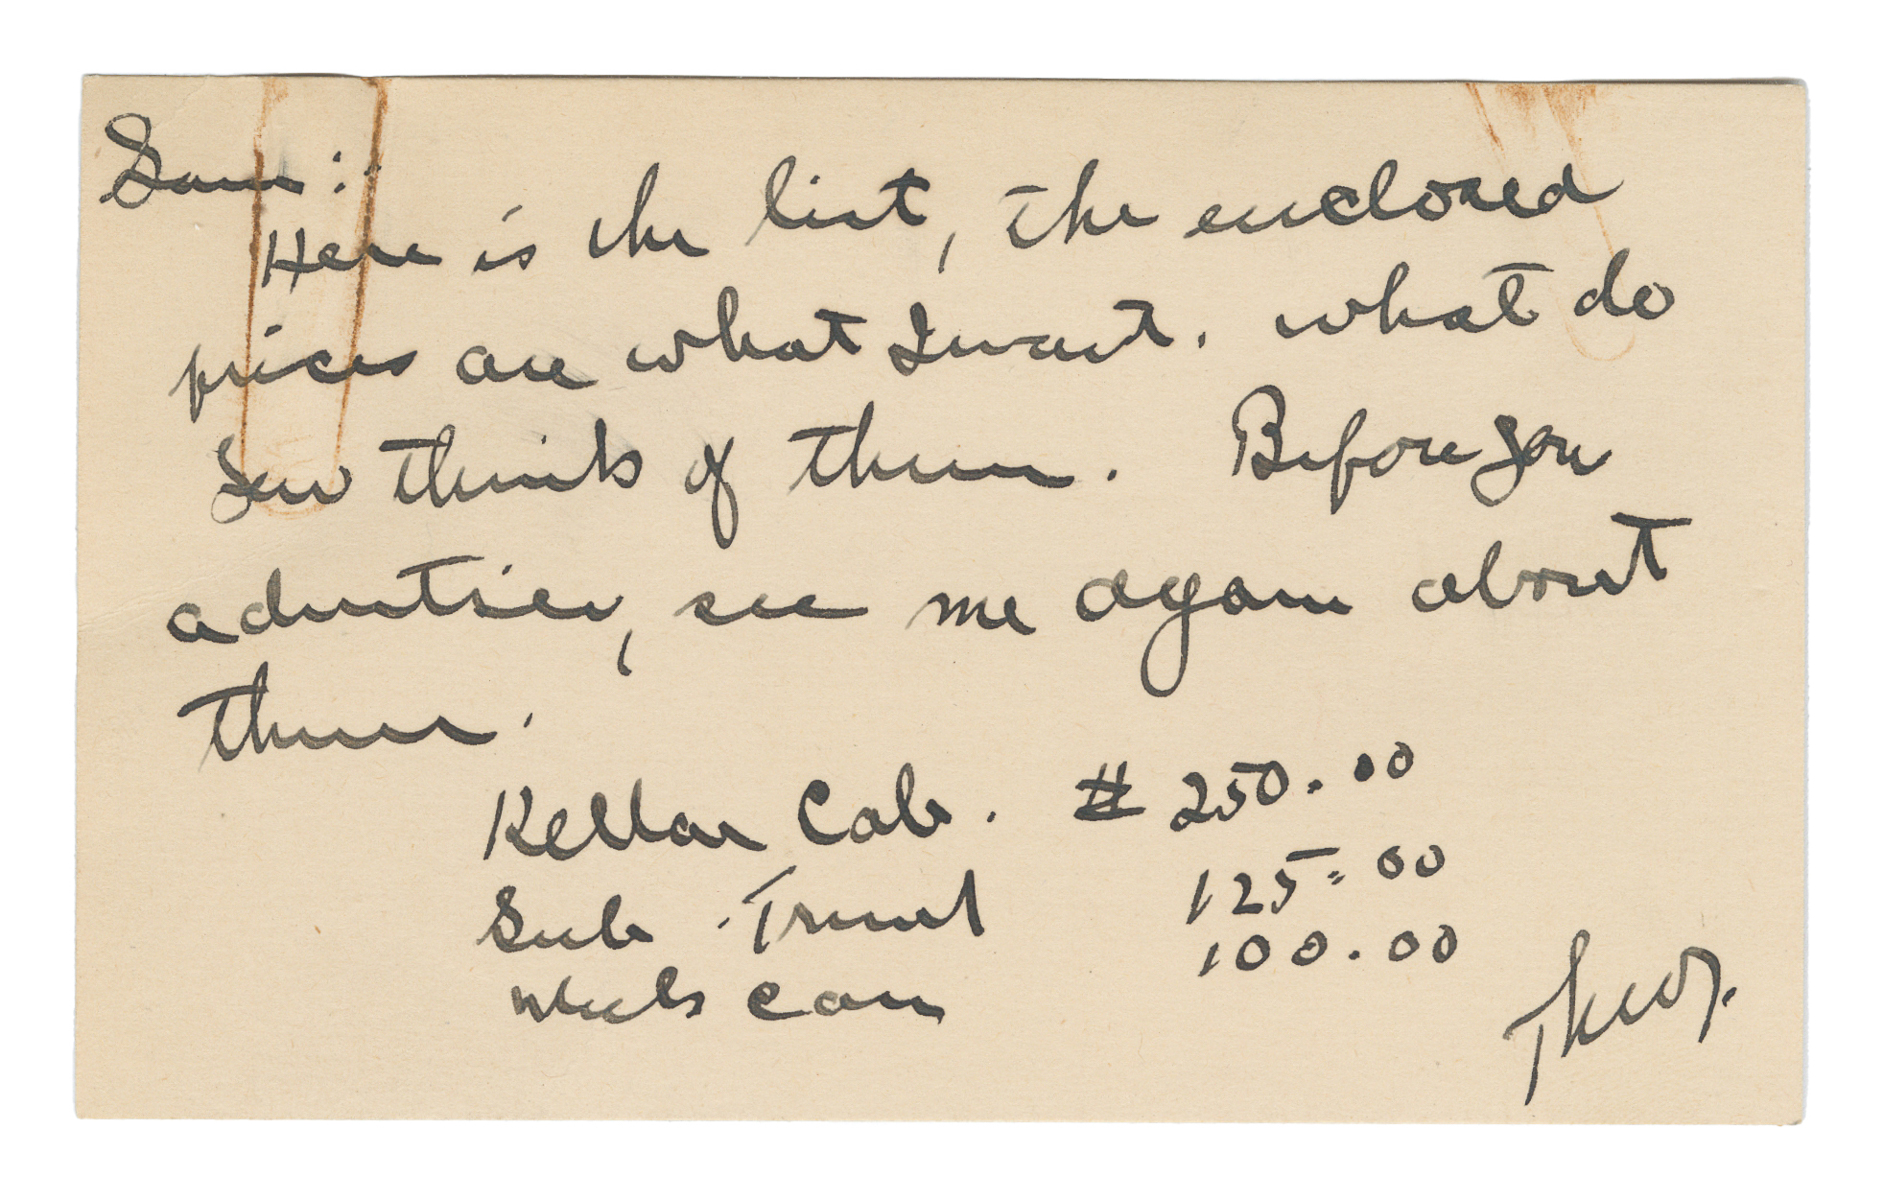 Sam:
Here is the list, the enclosed
prices are what I want. what do
you think of them. Before you
advertise, see me again about
them.
Kellar Cab. # 250.00
Sub Trunk 125.00
100.00
Theo.